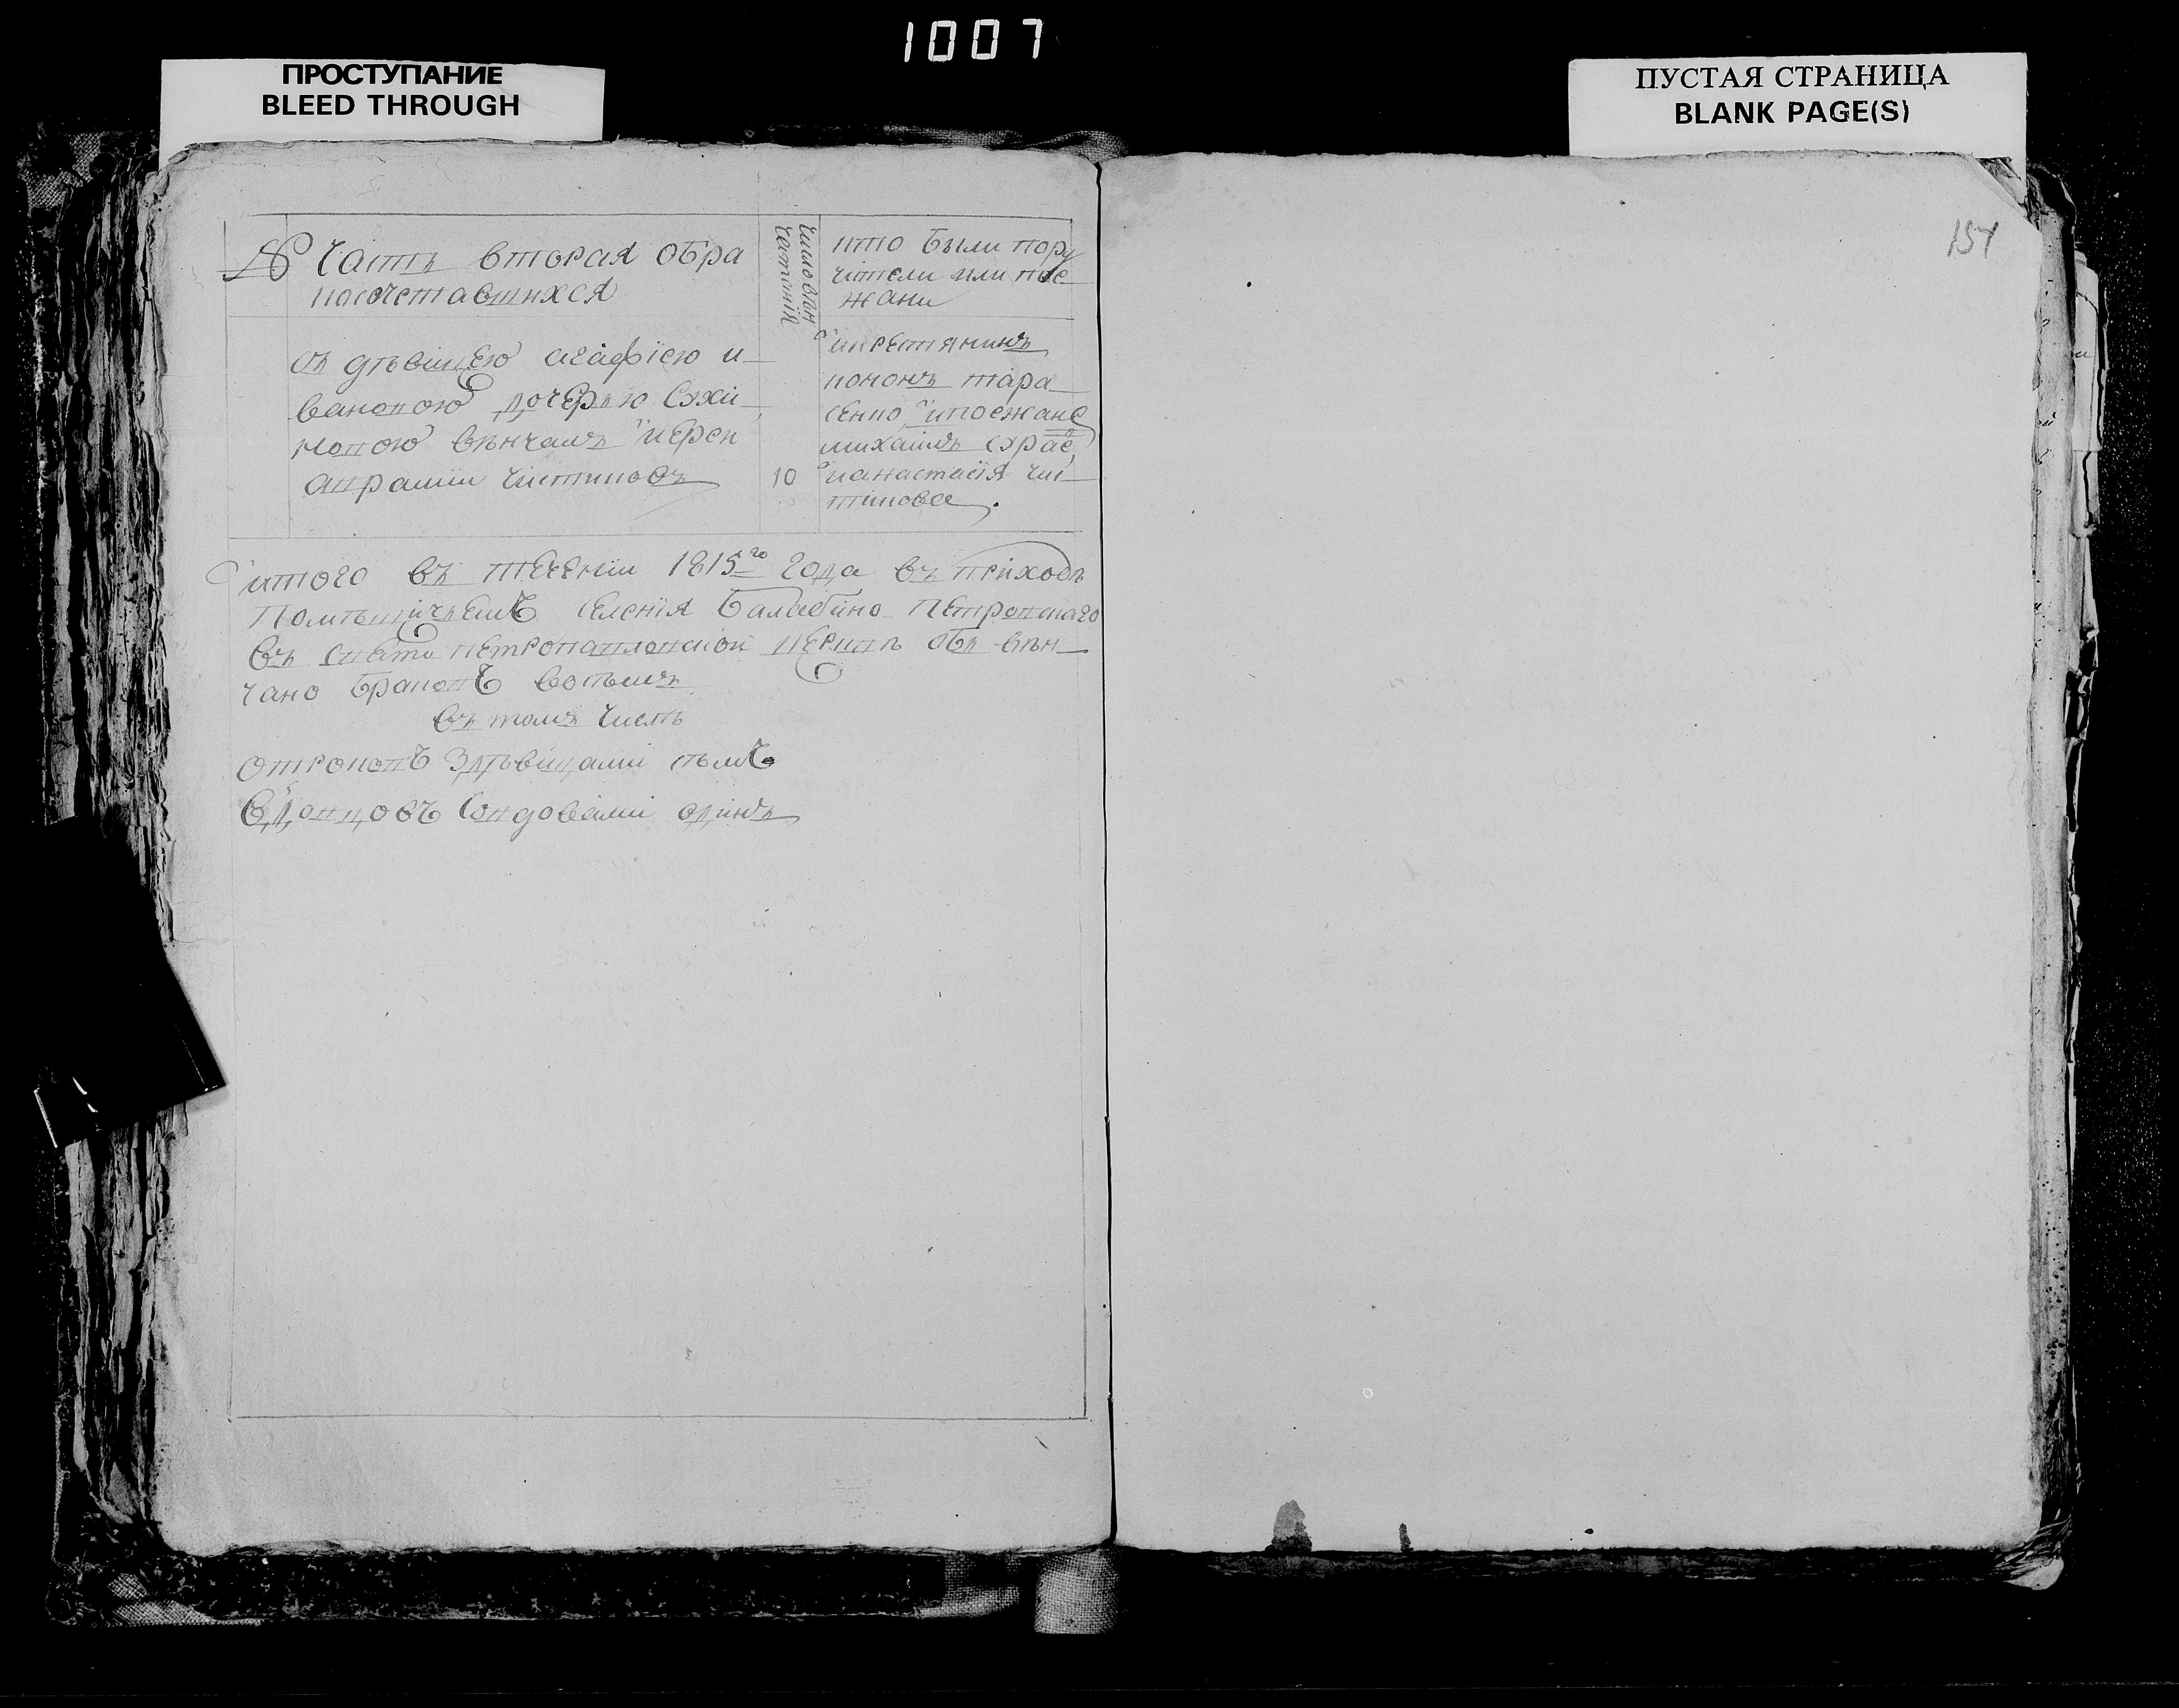 1007
ПРОСТУПАНИЕ
BLEED THROUGH
ПУСТАЯ СТРАНИЦА
BLANK PAGE(S)
151
№ Часть вторая обра
косочетавшихся
число вѣн
чатанія
кто были пору
чители или поѣ
жани
съ дѣвицею агафіею и
вановою дочерью Сухи
новою вѣнчалъ іерей
Афраніи Чистиковъ
10
крестянинъ
кононъ тара
сенко, ипоежане
михаилъ
ианастасія чи
стикова
итого въ теченіи 1815го года въ приходѣ
Помѣщичьемъ селенія Балабино Петровскаго
въ свято петропавловской церквѣ объ вѣн
чано браковъ восѣмъ
въ томъ числѣ
отроковъ здѣвицами сѣмъ
вдовцовъ совдовами одинъ